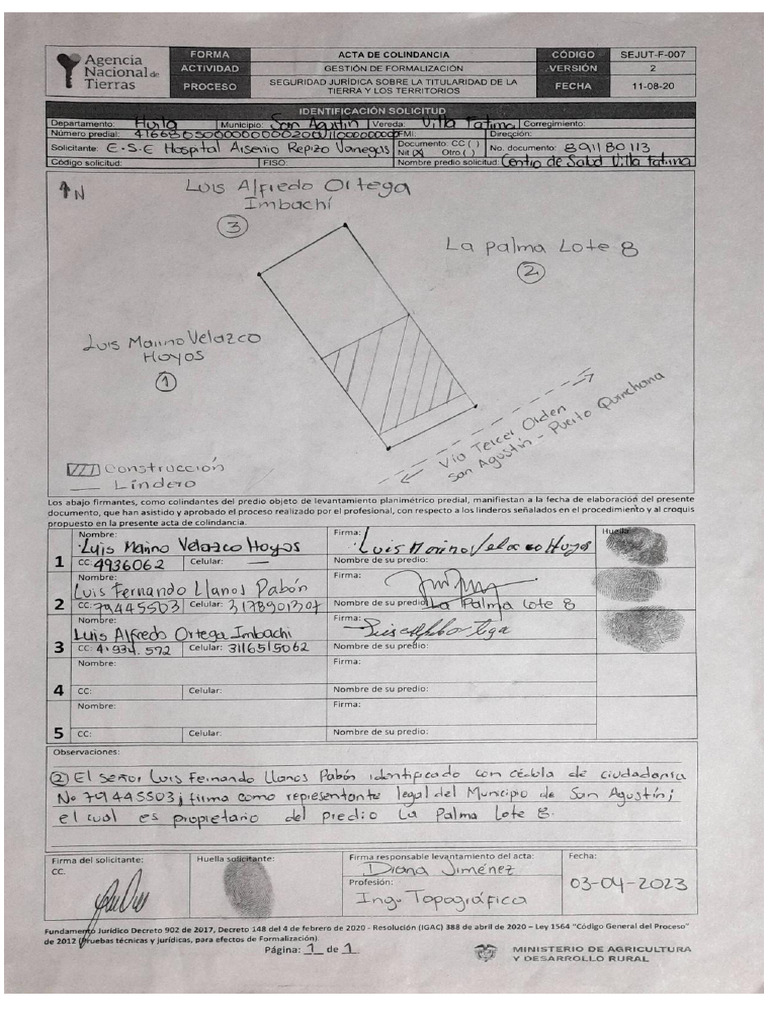 Agencia
Nacional de
Tierras
FORMA ACTA DE COLINDANCIA CÓDIGO SEJUT-F-007
ACTIVIDAD GESTIÓN DE FORMALIZACIÓN VERSIÓN 2
PROCESO SEGURIDAD JURÍDICA SOBRE LA TITULARIDAD DE LA TIERRA Y LOS TERRITORIOS FECHA 11-08-20
IDENTIFICACIÓN SOLICITUD
Departamento: Huila Municipio: San Agustín Vereda: Villa Fatima Corregimiento:
Número predial: FMI: Dirección:
Solicitante: E.S.E Hospital Arsenio Repizo Vanegas Documento: CC ( ) Nit (X) Otro ( ) No. documento: 891180113
Código solicitud: FISO: Nombre predio solicitud: Centro de Salud Villa Fatima
N
Luis Alfredo Ortega
Imbachí
3
La Palma Lote 8
2
Luis Marino Velazco
Hoyos
1
Vía Tercer Orden
San Agustín - Puerto Quinchana
Construcción
Lindero
Los abajo firmantes, como colindantes del predio objeto de levantamiento planimétrico predial, manifiestan a la fecha de elaboración del presente
documento, que han asistido y aprobado el proceso realizado por el profesional, con respecto a los linderos señalados en el procedimiento y al croquis
propuesto en la presente acta de colindancia.
Nombre: Luis Marino Velazco Hoyos Firma: Luis Marino Velazco Hoyos Huella
1 CC: 4936062 Celular: — Nombre de su predio:
Nombre: Luis Fernando Llanos Pabón Firma:
2 CC: 79445503 Celular: 3178901307 Nombre de su predio: La Palma Lote 8
Nombre: Luis Alfredo Ortega Imbachi Firma: Luis Alfredo Ortega
3 CC: 4.934.572 Celular: 3116515062 Nombre de su predio:
Nombre: Firma:
4 CC: Celular: Nombre de su predio:
Nombre: Firma:
5 CC: Celular: Nombre de su predio:
Observaciones:
② El señor Luis Fernando Llanos Pabón identificado con cédula de ciudadania
No 79445503; firma como representante legal del Municipio de San Agustín;
el cual es propietario del predio La Palma Lote 8.
Firma del solicitante: Huella solicitante: Firma responsable levantamiento del acta: Fecha:
CC. Diana Jiménez
Profesión: 03-04-2023
Ing. Topográfica
Fundamento Jurídico Decreto 902 de 2017, Decreto 148 del 4 de febrero de 2020 - Resolución (IGAC) 388 de abril de 2020 – Ley 1564 "Código General del Proceso"
de 2012 (Pruebas técnicas y jurídicas, para efectos de Formalización).
Página: 1 de 1
MINISTERIO DE AGRICULTURA
Y DESARROLLO RURAL